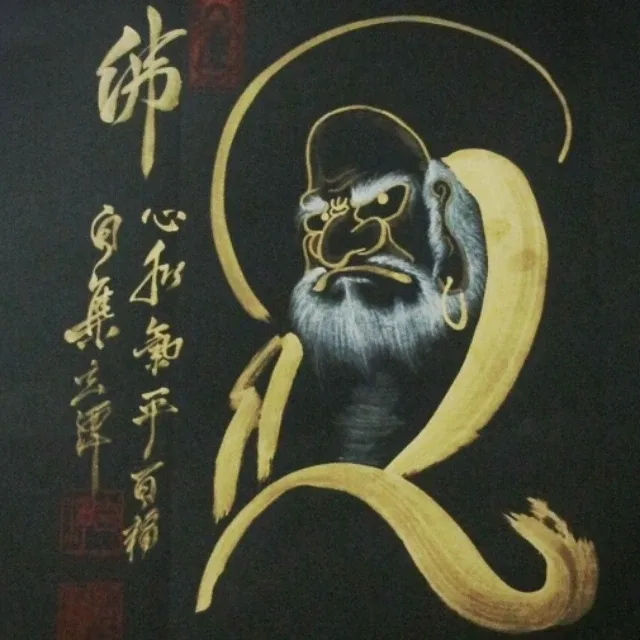 佛
心和氣平百福
自集